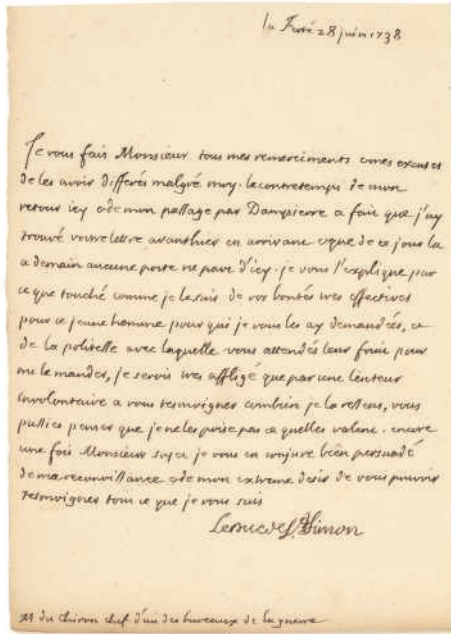 la Ferté 28 juin 1738
Je vous fais Monsieur tous mes remerciments et mes excuses
de les avoir differés malgré moy. le contretemps de mon
retour icy et de mon passage par Dampierre a fait que j'ay
trouvé vostre lettre avanthier en arrivant et que de ce jour la
a demain aucune poste ne part d'icy. je vous l'explique par
ce que touché comme je le suis de vos bontés tres effectives
pour ce jeune homme pour qui je vous les ay demandées, et
de la politesse avec laquelle vous attendés leur fruit pour
me le mander, je serois tres affligé que par une lenteur
involontaire a vous tesmoigner combien je la ressens, vous
pussiés penser que je ne les prise pas ce quelles valent. encore
une fois Monsieur soyez je vous en conjure bien persuadé
de ma reconoissance et de mon extreme desir de vous pouvoir
tesmoigner tout ce que je vous suis
Le Duc de St Simon
M du Chiron chef d'un des bureaux de la guerre